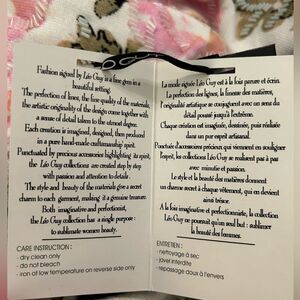 Fashion signed by Léo Guy is a fine gem in a
beautiful setting.
The perfection of lines, the fine quality of the materials,
the artistic originality of the design come together with
a sense of detail taken to the utmost degree.
Each creation is imagined, designed, then produced
in a pure hand-made craftsmanship spirit.
Punctuated by precious accessories highlighting its spirit,
the Léo Guy collections are created step by step
with passion and attention to detail.
The style and beauty of the materials give a secret
charm to each garment, making it a genuine treasure.
Both imaginative and perfectionist,
the Léo Guy collection has a single purpose :
to sublimate women beauty.
CARE INSTRUCTION :
- dry clean only
- do not bleach
- iron at low temperature on reverse side only
La mode signée Léo Guy est à la fois parure et écrin.
La perfection des lignes, la finesse des matières,
l'originalité artistique se conjuguent avec un sens du
détail poussé jusqu'à l'extrême.
Chaque création est imaginée, dessinée, puis réalisée
dans un pur esprit artisanal.
Ponctuée d'accessoires précieux qui viennent en souligner
l'esprit, les collections Léo Guy se réalisent pas à pas
avec minutie et passion.
Le style et la beauté des matières donnent
un charme secret à chaque vêtement, qui en devient
ainsi trésor.
A la fois imaginative et perfectionniste, la collection
Léo Guy ne poursuit qu'un seul but : sublimer
la beauté des femmes.
ENTRETIEN :
- nettoyage à sec
- javel interdite
- repassage doux à l'envers